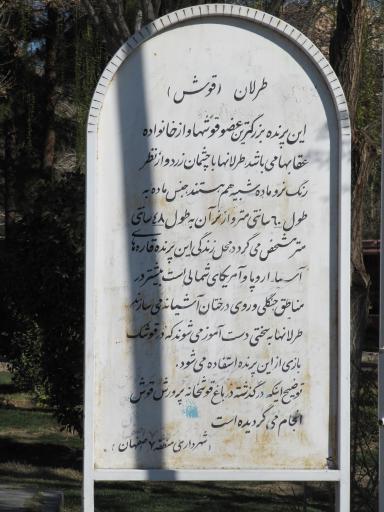 طرلان (قوش)
این پرنده بزرگترین عضو قوشها و از خانواده
عقابها می باشد. طرلانها با چشمان زرد و از نظر
رنگ نر و ماده شبیه هم هستند. جنس ماده به
طول ۶۰ سانتی متر و از نر آن به طول ۴۸ سانتی
متر مشخص می گردد محل زندگی این پرنده قاره های
آسیا، اروپا و آمریکای شمالی است بیشتر در
مناطق جنگلی و روی درختان آشیانه می سازند
طرلانها به سختی دست آموز می شوند که در قوشک
بازی از این پرنده استفاده می شود.
توضیح اینکه در گذشته در باغ قوشخانه پرورش قوش
انجام می گردیده است
(شهرداری منطقه ۷ اصفهان)